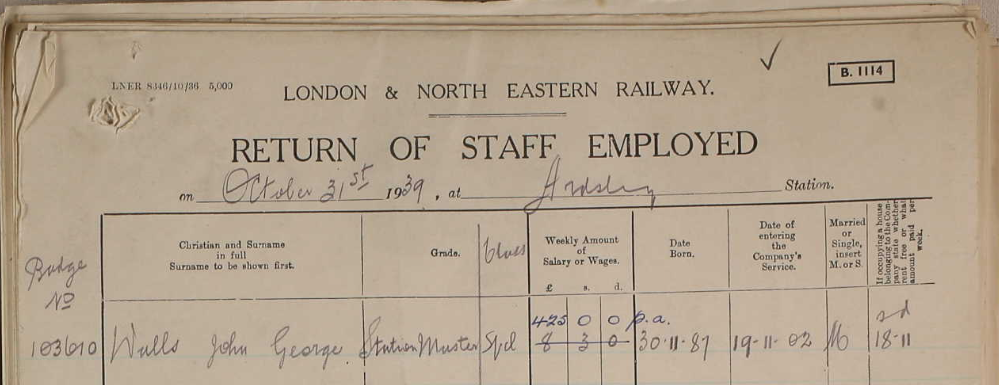 LNER 8346/10/36 5,000
B. 1114
LONDON & NORTH EASTERN RAILWAY.
RETURN OF STAFF EMPLOYED
on October 31st 1939, at Ardsley Station.
Badge No
Christian and Surname in full Surname to be shown first.
Grade.
Class
Weekly Amount of Salary or Wages.
£ s. d.
Date Born.
Date of entering the Company's Service.
Married or Single, insert M. or S.
If occupying a house belonging to the Company state whether rent free or what amount paid per week.
425 0 0 p.a. s d
103610 Walls John George Station Master Spcl 8 3 0 30-11-87 19-11-02 M 18-11